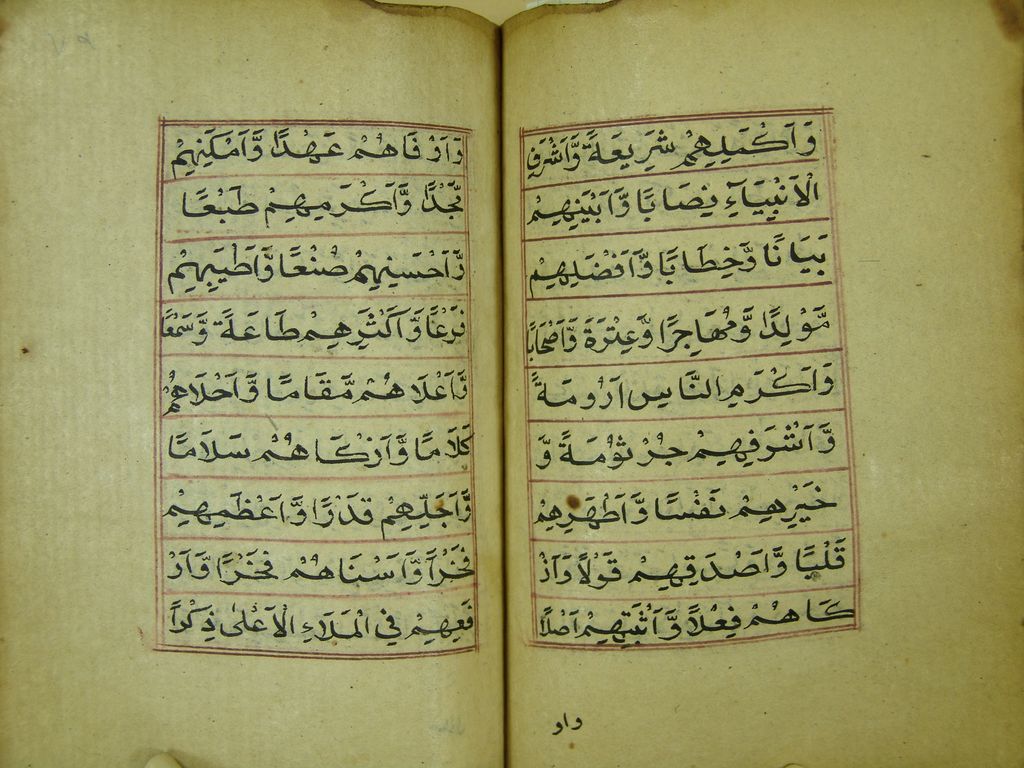 وَاَكْمَلِهِمْ شَرِيعَةً وَّاَشْرَفِ
الْاَنْبِيَآءِ نِصَابًا وَّاَبْيَنِهِمْ
بَيَانًا وَّخِطَابًا وَّاَفْضَلِهِمْ
مَّوْلِدًا وَّمُهَاجِرًا وَّعِتْرَةً وَّاَصْحَابًا
وَاَكْرَمِ النَّاسِ اَرُومَةً
وَّاَشْرَفِهِمْ جُرْثُومَةً وَّ
خَيْرِهِمْ نَفْسًا وَّاَطْهَرِهِمْ
قَلْبًا وَّاَصْدَقِهِمْ قَوْلًا وَاَزْ
كَاهُمْ فِعْلًا وَّاَثْبَتِهِمْ اَصْلًا
واو
وَّاَوْفَاهُمْ عَهْدًا وَّاَمْكَنِهِمْ
مَّجْدًا وَّاَكْرَمِهِمْ طَبْعًا
وَّاَحْسَنِهِمْ صُنْعًا وَّاَطْيَبِهِمْ
فَرْعًا وَّاَكْثَرِهِمْ طَاعَةً وَّسَمْعًا
وَّاَعْلَاهُمْ مَّقَامًا وَّاَحْلَاهُمْ
كَلَامًا وَّاَزْكَاهُمْ سَلَامًا
وَّاَجَلِّهِمْ قَدْرًا وَّاَعْظَمِهِمْ
فَخْرًا وَّاَسْنَاهُمْ فَخْرًا وَّاَرْ
فَعِهِمْ فِي الْمَلَاءِ الْاَعْلٰى ذِكْرًا